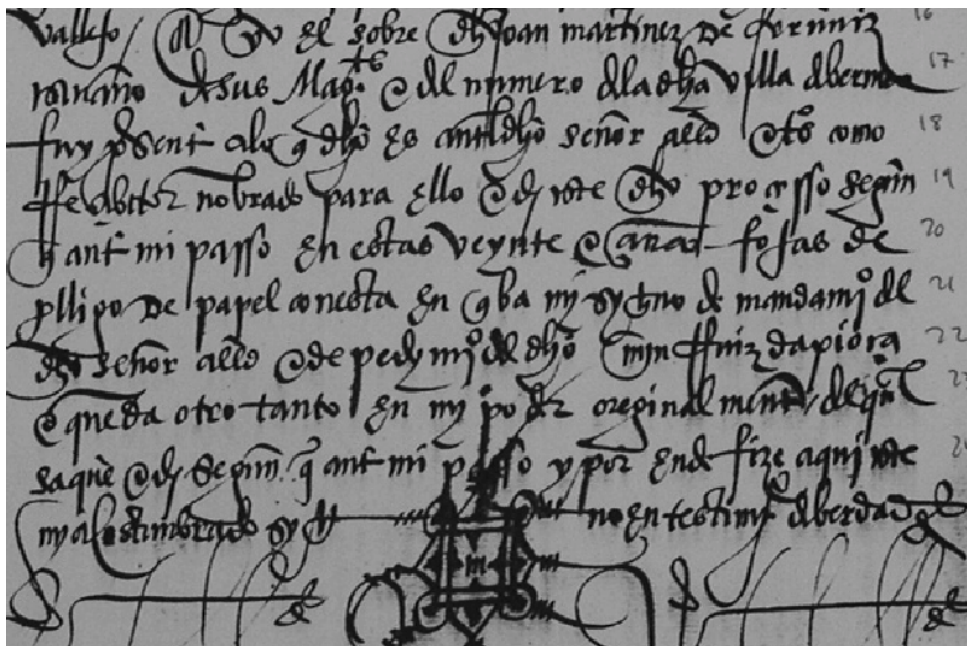 vallejo e yo el sobre dho joan martinez de 16
de sus mag.tes e del numero de la dha villa de berme 17
fuy present a lo q dho es ant el dho señor alld como 18
nobrado para ello e di este dho processo segun 19
q ant mi passo en estas veynte e fojas de 20
pliego de papel con esta en q ba my sygno de mandamyo del 21
dho señor alld e de pedymyo del dho min rruiz d 22
e queda otro tanto en my poder oreginalment del qual 23
saque e di segun q ant mi passo y por ende fize aqui este
my acostunbrado syg no en testimo de berdad